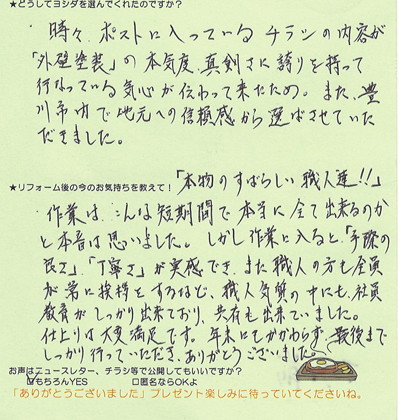 ★どうしてヨシダを選んでくれたのですか?
・時々、ポストに入っているチラシの内容が
「外壁塗装」の本気度、真剣さに誇りを持って
行なっている気心が伝わって来たため。また、豊
川市内で地元への信頼感から選ばさせていた
だきました。
★リフォーム後の今のお気持ちを教えて!「本物のすばらしい職人達!!」
・作業は、こんな短期間で本当に全て出来るのか
と本音は思いました。しかし作業に入ると、「手際の
良さ」、「丁寧さ」が実感でき、また職人の方も全員
が常に挨拶をするなど、職人気質の中にも、社員
教育がしっかり出来ており、共有も出来ていました。
仕上りは大変満足です。年末にもかかわらず、最後まで
しっかり行っていただき、ありがとうございました。
お声はニュースレター、チラシ等で公開してもいいですか?
☑もちろんYES □匿名ならOKよ
「ありがとうございました」プレゼント楽しみに待っていてくださいね。